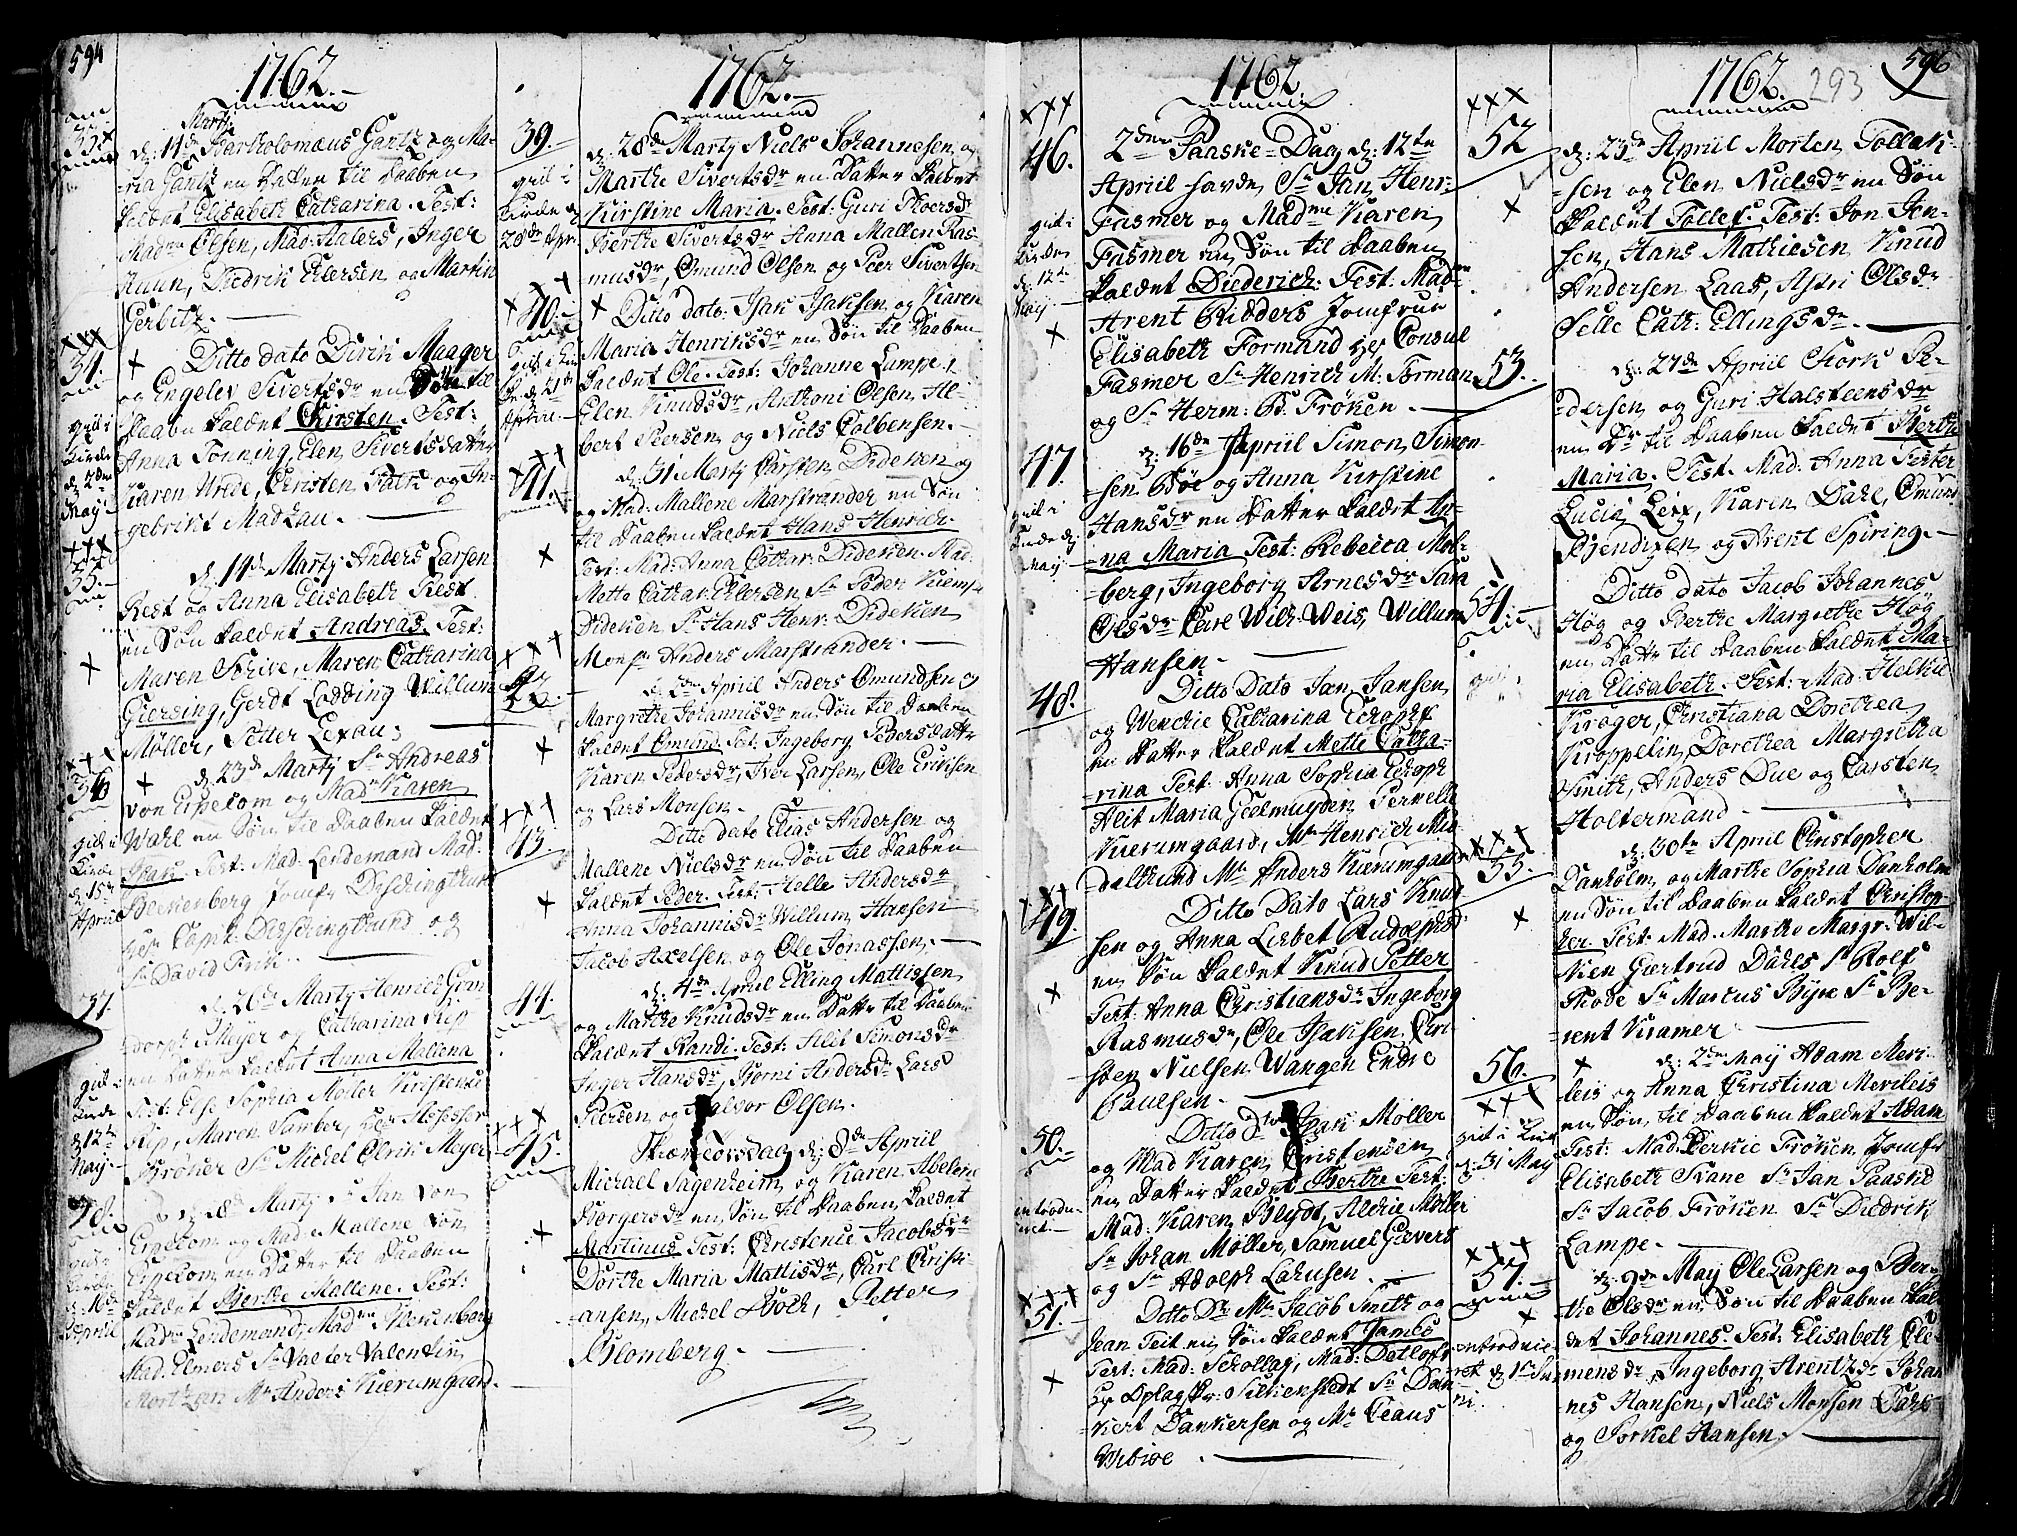 594
1762.
Marty
33
d: 11de Bartholomæus Gantz og Ma-
-ria Gantz en Datter til Daaben
kaldet Elisabeth Catharina. Test:
Mad Olsen, Mad: Aalers, Inger
Ruun, Diedrik Ehlersen og Martin
Gerbitz.
34.
Ditto dato Dirik Maager
og Engelev Sivertsdr en Søn til
Daabn kaldet Christen. Test:
Anna Tønning, Elen Sivertsdatter
Karen Wrede, Christen Falck og In-
gebrikt Madzau.
35.
d. 14de Marty Anders Larsen
Rest og Anna Elisabeth Rest
en Søn kaldet Andreas. Test:
Maren Scrive, Maren Catharina
Giersing, Gerdt Lodding Willum
Møller, Petter Lexau.
36
d: 23de Marty Sr Andreas
von Erpecom og Mad Karen
Wahl en Søn til Daaben kaldet
Hans. Test: Mad. Lendemand Mad:
Beckenberg Jomfr
hr: Capit:
Sr David Frik.
37.
d. 26de Marty Henrich Gom
dorph Meyer og Catharina Krip
en Datter kaldet Anna Mallena
Test: Else Sophia Møller Kirstence
Krip, Maren Samber, her Assessor
Krøner Sr Michel Olrik Meyer
38.
d. 28de Marty Sr Jan von
Erpecom og Mad Mallene von
Erpecom en Datter til Daaben
kaldet Berthe Mallene. Test:
Mad Lendemand, Mad
Mad. Elmers Sr Valter Valentin
Mortzen Mr Anders Kierumgaard.
39.
1762.
d: 28de Marty Niels Johannesen og
Marthe Sivertsdr en Datter kaldet
Kirstine Maria. Test: Guri Thoersdr
Berthe Sivertsdr Anna Mallen Ras-
musdr, Omund Olsen og Peer Sivertsen
40.
Ditto dato Isak Isaksen og Karen
Maria Henriksdr en Søn til Daaben
kaldet Ole. Test: Johanne Lampe,
Elen Knudsdr, Anthoni Olsen, Al-
bert Peersen og Niels Colbensen.
41.
d. 31 Marty Carsten Didrksen og
Mad: Mallene Marstrander en Søn
til Daaben kaldet Hans Henrich.
Test: Mad: Anna Cathar: Didrksen. Mad.
Mette Cathar: Ehlersen Sr Peder
Didrksen Sr Hans Henr: Didrksen
Monsr Anders Marstrander.
42.
d. 2den April Anders Omundsen og
Margrethe Johannisdr en Søn til Daaben
kaldet Omund. Test: Ingeborg Pedersdatter
Karen Pedersdr, Iver Larsen, Ole Eriksen
og Lars Monsen.
43.
Ditto dato Elias Andersen og
Mallene Nielsdr en Søn til Daaben
kaldet Peder. Test: Helle Andersdr
Anna Johannisdr Willum Hansen
Jacob Axelsen og Ole Jonassen.
44.
d: 4de April Elling Mattissen
og Marthe Knudsdr en Datter til Daaben
kaldet Randi. Test: Alit Simonsdr
Inger Hansdr, Børni Andersdr Lars
Peersen og Halvor Olsen.
45.
Skiærtorsdag d: 8de April
Michael Sagenheim og Karen Abelene
Børgersdr en Søn til Daaben kaldet
Martinus. Test: Christence Jacobsdr
Dorthe Maria Mattisdr, Carl Christi-
ansen, Michel Bock, Petter
Blomberg.
1762.
46.
2den Paaske-Dag d: 12te
Apriil havde Sr Jan Henr:
Fasmer og Madme Karen
Fasmer en Søn til Daaben
kaldet Diederich: Test. Mad
Arent Ridders Jomfrue
Elisabeth Formand hr Consul
Fasmer Sr Henrich M: Forman
og Sr Herm: D. Frøken.
47.
d: 16de Apriil Simon Simon-
-sen Bøe og Anna Kirstine
Hansdr en Datter kaldet An-
-na Maria Test: Rebecca Mol-
-berg, Ingeborg Arnesdr Sara
Olsdr Carl Wilh. Weis, Willum
Hansen.
48.
Ditto Dato Jan Jansen
og Wenckie Catharina Schopff
en Datter kaldet Mette Catha-
-rina Test: Anna Sophia Schoph
Alit Maria Geelmuyden Pernelle
Kierumgaard, Mr Henrich Mid-
-delthund Mr Anders Kierumgaard
49.
Ditto Dato Lars Knud
sen og Anna Lisbet Rudolphsdr
en Søn kaldet Knud Petter
Test: Anna Christiansdr Ingeborg
Rasmusdr, Ole Isaksen, Chri-
-stoen Nielsen Wangen Endre
Paulsen.
50.
Ditto Dto Isak Møller
og Mad Karen Christensen
en Datter kaldet Berthe Test:
Mad: Karen Blydt, Alchie Møller
Sr Johan Møller, Samuel Gievers
og Sr Adolph Lahusen.
51.
Ditto Dr Mr Jacob Smith og
Jean Teit en Søn kaldet James
Test: Mad: Schollay, Mad: Detloff
Sr Dan-
-kert Dankersen og Mr Claus
Wibioe
1762.
596
293
52
d: 23de Apriil Morten Tollak-
-sen og Elen Nielsdr en Søn
kaldet Tolle. Test: Jon Jen-
sen, Hans Mathiesen Knud
Andersen Laas, Astri Olsdr
Selle Cath: Ellingsdr.
53
d: 27de Apriil Stork Pe-
dersen og Guri Halsteensdr
en Dr til Daaben kaldet Berthe
Maria. Test. Mad: Anna Fester
Lucia Lexx, Karen Dahl, Omund
Bendixen og Arent Spiring.
54.
Ditto dato Jacob Johannes
Høg og Berthe Margrethe Høg
en Datter til Daaben kaldet Ma-
ria Elisabeth. Test. Mad: Helkie
Krøger, Christiana Dorthea
Kroppelin, Dorthea Margretha
Smith, Anders Due og Carsten
Holtermand.
55.
d: 30te April Christopher
Danholm og Marthe Sophia Danholm
en Søn til Daaben kaldet Christop-
her. Test: Mad. Marthe Margr: Wil-
Kien Giertrud Dahls Sr Rolf
Thode Sr Marcus Bÿse Sr Be-
-rent Kramer
56.
d: 2den May Adam Meri-
leis og Anna Christina Merileis
en Søn til Daaben kaldet Adam
Test: Mad: Derkie Frøken Jomfr
Elisabeth Svane Sr Jan Paaske
Sr Jacob Frøken Sr Diedrik
Lampe.
57.
d: 9de May Ole Larsen og Ber-
the Olsdr en Søn til Daaben kal-
det Johannes. Test: Elisabeth Cle-
mensdr, Ingeborg Arentzdr Johan
nes Hansen, Niels Monsen
og Torkel Hansen.